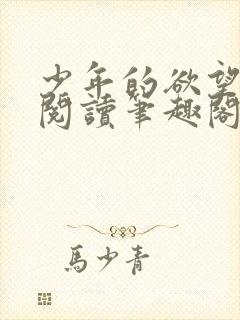 少年的欲望
閱讀筆趣閣
馬少青